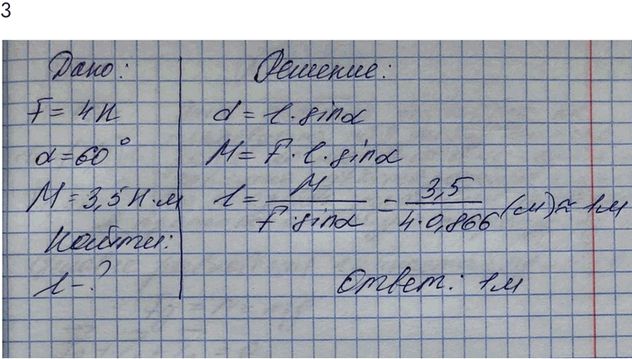 3
Дано:
F = 4 Н
α = 60°
М = 3,5 Н·м
Найти:
l - ?
Решение:
d = l · sinα
М = F · l · sinα
l = М / (F · sinα) = 3,5 / (4 · 0,866) (м) ≈ 1 м
Ответ: 1 м